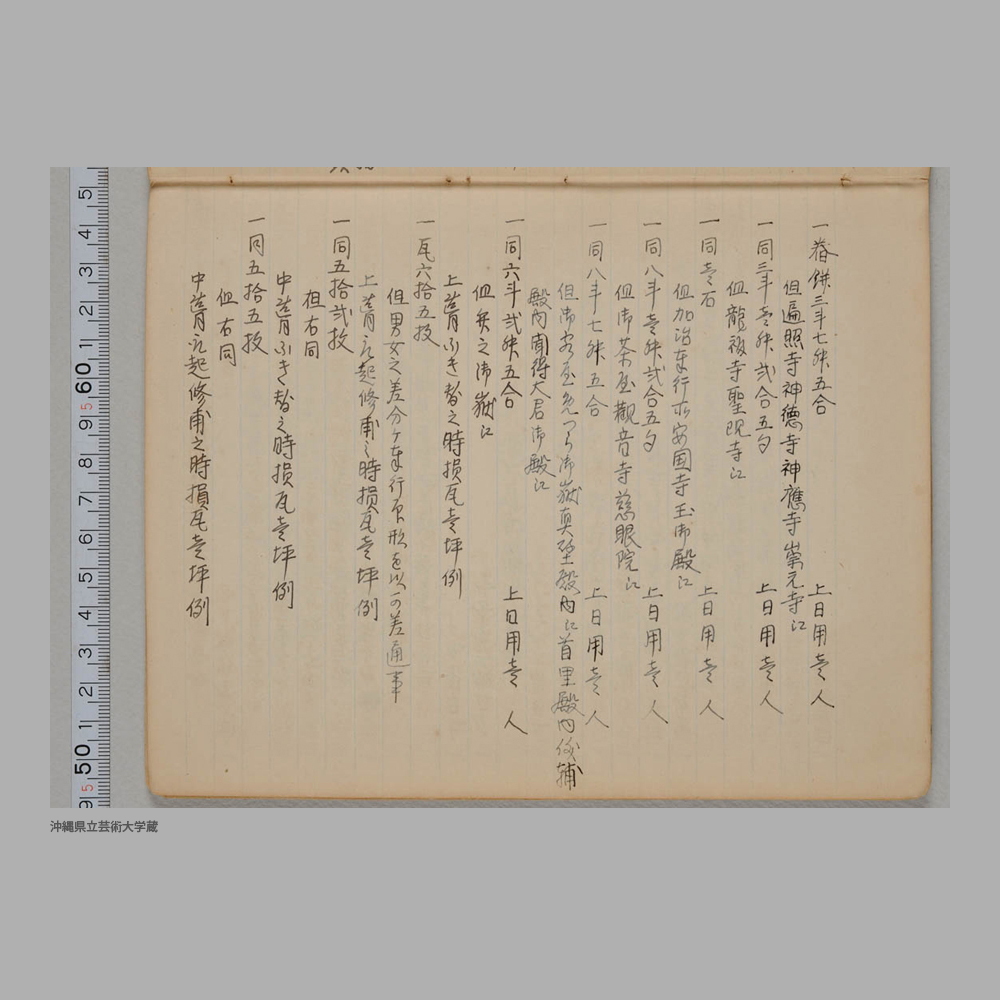 一 飬餅三斗七舛五合 上日用壱人
但遍照寺神徳寺神應寺崇元寺江
一 同三斗壱舛弐合五勺 上日用壱人
但龍福寺聖現寺江
一 同壱石 上日用壱人
但加治奉行所安国寺玉御殿江
一 同八斗壱舛弐合五勺 上日用壱人
但御茶屋観音寺慈眼院江
一 同八斗七舛五合 上日用壱人
但御客屋 御嶽真壁殿内江首里殿内儀輔
殿内聞得大君御殿江
一 同六斗弐舛五合 上日用壱人
但 之御嶽江
上葺ふき替之時損瓦壱坪例
一 瓦六拾五枚
但男女之差分ケ奉行原形を以可差通事
上葺 起修甫之時損瓦壱坪例
一 同五拾弐枚
担右同
中葺ふき替之時損瓦壱坪例
一 同五拾五枚
但右同
中葺 起修甫之時損瓦壱坪例
沖縄県立芸術大学蔵